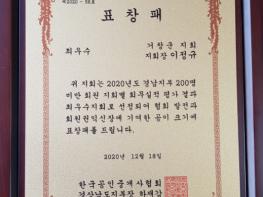 제2020 - 58호
표 창 패
최우수
거창군 지회
지회장 이정규
위 지회는 2020년도 경남지부 200명
미만 회원 지회별 회무실적 평가 결과
최우수지회로 선정되어 협회 발전과
회원권익신장에 기여한 공이 크기에
표창패를 드립니다.
2020년 12월 18일
한국공인중개사협회
경상남도지부장 하재갑